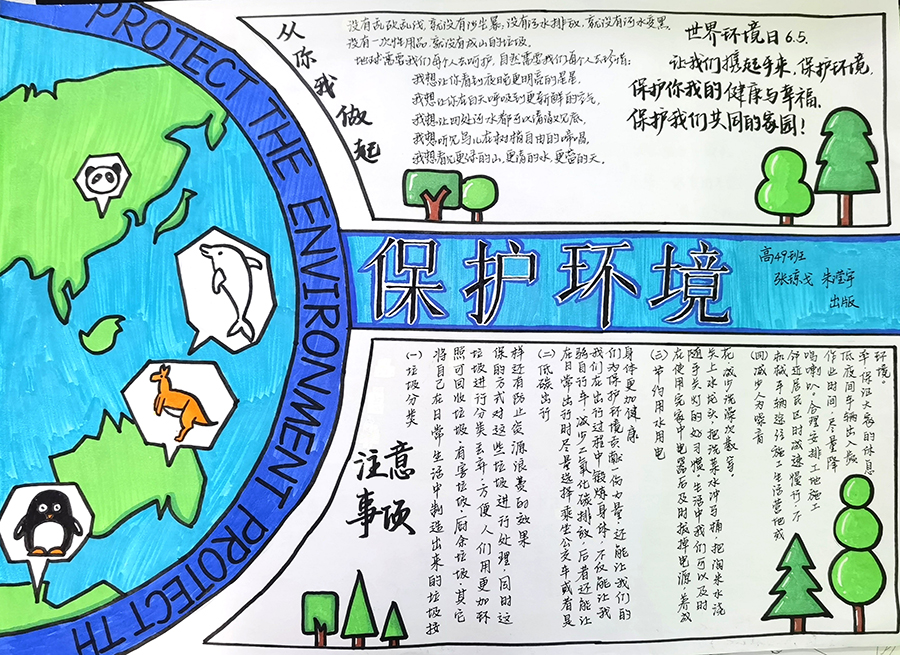 PROTECT THE ENVIRONMENT PROTECT TH
从你我做起
没有乱砍乱伐,就没有沙尘暴,没有污水排放,就没有河水变黑,
没有一次性用品,就没有成山的垃圾。
地球需要我们每个人去呵护,自然需要我们每个人去珍惜:
我想让你看到夜晚更明亮的星星,
我想让你在白天呼吸到更新鲜的空气,
我想让四处污水都可以清澈见底,
我想听见鸟儿在树梢自由的啼唱,
我想看见更绿的山,更清的水,更蓝的天。
世界环境日6.5.
让我们携起手来,保护环境,
保护你我的健康与幸福,
保护我们共同的家园!
保护环境
高49班
张琼戈 朱滢宇
出版
注意
事项
(一) 垃圾分类
将自己在日常生活中制造出来的垃圾按
照可回收垃圾、有害垃圾、厨余垃圾、其它
垃圾进行分类丢弃,方便人们用更加环
保的方式对这些垃圾进行处理,同时这
样还有防止资源浪费的效果
(二) 低碳出行
在日常出行时尽量选择乘坐公交车或者是
骑自行车,减少二氧化碳排放,后者还能让
我们在出行过程中锻炼身体,不仅能让我
们为保护环境贡献一份力量,还能让我们的
身体更加健康
(三) 节约用水用电
在使用完家中电器后及时拔掉电源,养成
随手关灯的好习惯,生活中我们可以及时
关上水龙头,把洗菜水冲马桶,把淘米水浇
花,减少洗澡次数等。
(四) 减少人为噪音
机械车辆途径施工生活营地或
伴近居民区时减速慢行,不
鸣喇叭。合理安排工地施工
作业时间,尽量降
低夜间车辆出入频
率,保证大家的休息
环境。